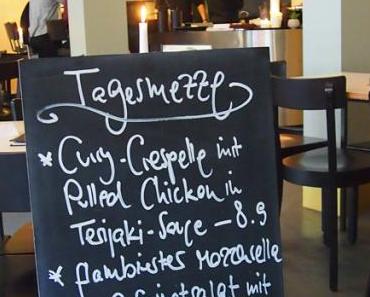 Tagesmezze
* Curry-Crespelle mit
Pulled Chicken in
Terijaki-Sauce - 8.9
* flambiertes Mozzarella
mit